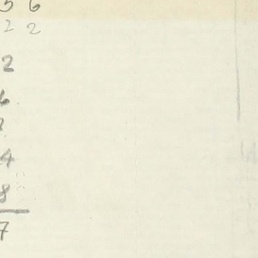 5 6
2 2
2
6
4
8
7